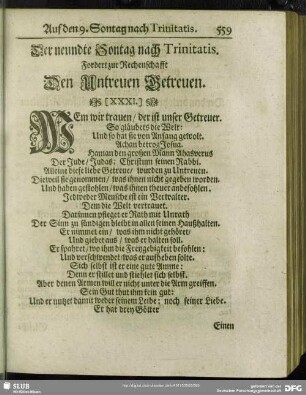 Auf den 9. Sontag nach Trinitatis. 559
Der neundte Sontag nach Trinitatis.
Fordert zur Rechenschafft
Den Untreuen Getreuen.
[XXXI.]
WEm wir trauen / der ist unser Getreuer.
So gläubets die Welt:
Und so hat sie von Anfang gewolt.
Achan betrog Josua.
Haman den großen Mann Ahasverus
Der Jude / Judas; Christum seinen Rabbi.
Alleine diese liebe Getreue / wurden zu Untreuen.
Dieweil sie genommen / was ihnen nicht gegeben worden.
Und haben gestohlen / was ihnen theuer anbefohlen.
Jedweder Mensche ist ein Verwalter.
Dem die Welt vertrauet.
Darinnen pfleget er Rath mit Unrath
Der Sinn zu sündigen bleibt in allen seinen Haußhalten.
Er nimmet ein / was ihm nicht gehöret /
Und giebet aus / was er halten soll.
Er sparet / wo ihn die Freygebigkeit besohlen:
Und verschwendet / was er aufheben solte.
Sich selbst ist er eine gute Amme:
Denn er stillet und stiehlet sich selbst.
Aber denen Armen will er nicht unter die Arm greiffen.
Sein Gut thut ihm kein gut:
Und er nutzet damit weder seinem Leibe; noch seiner Liebe.
Er hat drey Götter
Einen
SLUB
Wir führen Wissen.
DFG
gefördert von der
Deutschen Forschungsgemeinschaft